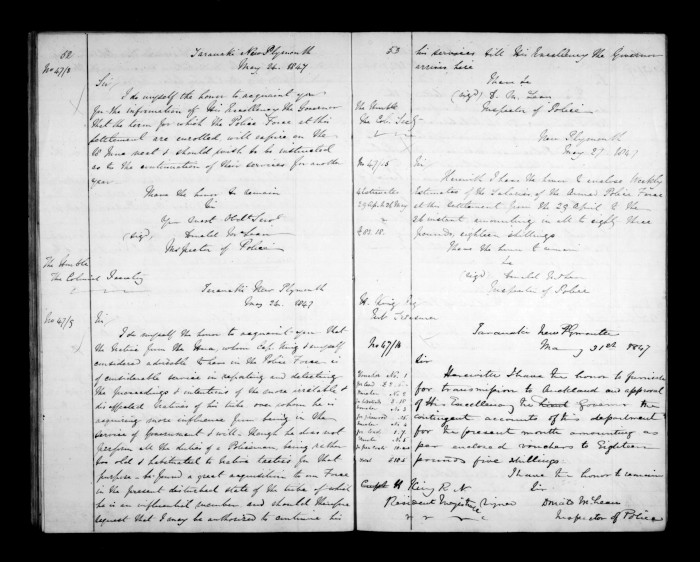 52
Taranaki New Plymouth
No 47/8
May 24. 1847
Sir
I do myself the honor to acquaint you
for the information of His Excellency the Governor
that the term for which the Police Force at this
settlement are enrolled, will expire on the
10 June next & should wish to be instructed
as to the continuation of their services for another
year
I have the honor to remain
Sir
Your most Obdt Servt
(sigd) Donald McLean
Inspector of Police
The Honble
The Colonial Secretary
Taranaki New Plymouth
May 24. 1847
No 47/9
Sir
I do myself the honor to acquaint you that
the Native from the Hua, whom Cap. King & myself
considered advisable to have in the Police Force is
of considerable service in repeating and detecting
the proceedings & intentions of the more irritable &
disaffected Natives of his tribe over whom he is
acquiring more influence from being in the
service of Government & will - though he does not
perform all the duties of a Policeman, being rather
too old & habituated to native tastes for that
purpose - be found a great acquisition to our Force
in the present disturbed state of the tribe of which
he is an influential member and should therefore
request that I may be authorized to continue his
53
his services till His Excellency the Governor
arrives here
I have &c
(sigd) D. McLean
Inspector of Police
The Honble
The Col. Secty
New Plymouth
May 27. 1847
No 47/15
Sir
Herewith I have the honor to enclose Weekly
Abstracts
estimates of the Salaries of the Armed Police Force
29 April to 26 May
at this settlement from the 29 April to the
26 instant amounting in all to eighty three
£83.18.
pounds, eighteen shillings.
I have the honor to remain
&c
(sigd) Donald McLean
Inspector of Police
H. King Esq
Sub Treasurer
Taranaki New Plymouth
No 47/16
May 31st 1847
Sir
Herewith I have the honor to furnish
for transmission to Auckland and approval
of His Excellency the Governor the
contingent accounts of this department
for the present month amounting as
per enclosed vouchers to Eighteen
pounds five shillings.
I have the honor to remain
Sir
Captn H King R. N.
Resident Magistrate
signed Donald McLean
Inspector of Police